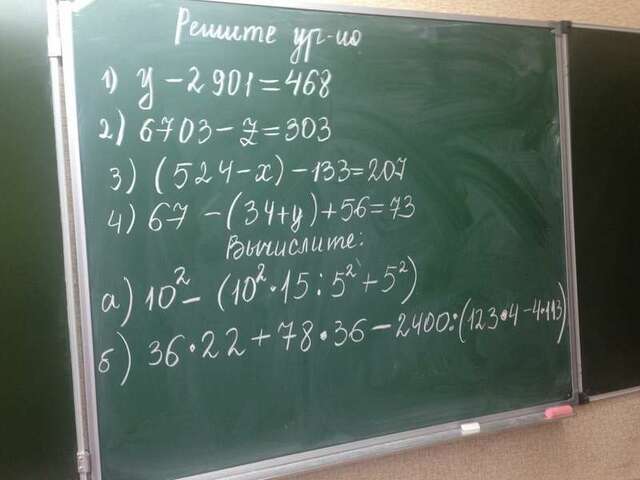 Решите ур-ио
1) y - 2 901 = 468
2) 6703 - z = 303
3) (524 - x) - 133 = 207
4) 67 - (34 + y) + 56 = 73
Вычислите:
а) 10² - (10² · 15 : 5² + 5²)
б) 36 · 22 + 78 · 36 - 2400 : (123 · 4 - 4 · 113)